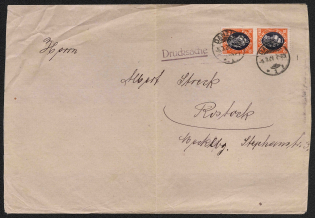 Drucksache
Herrn
Albert Strock
Rostock
Mecklbg. Stephanstr.